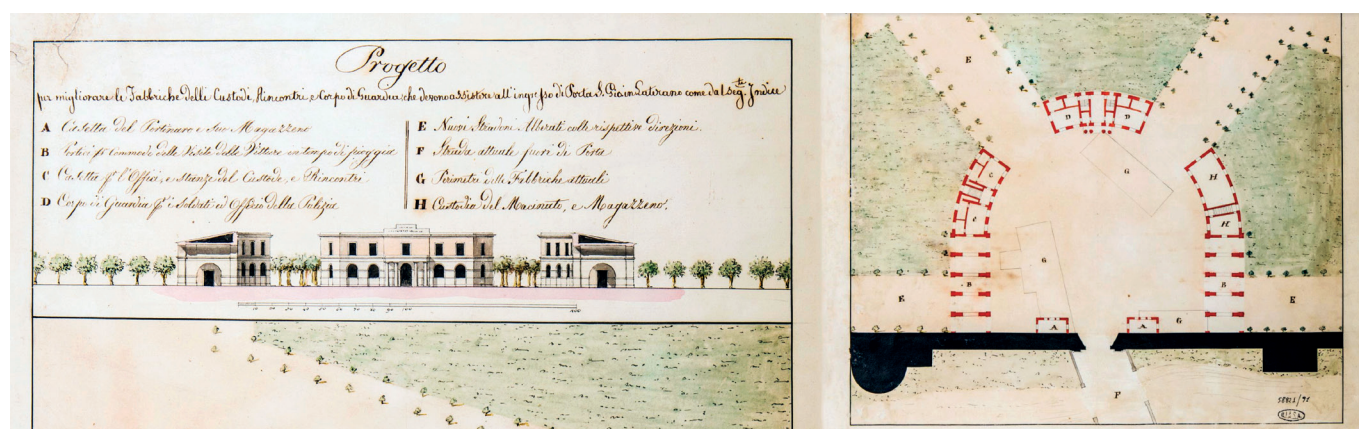 Progetto
per migliorare le Fabbriche delli Custodi, Rincontri, e Corpo di Guardia che devono assistere all'ingresso di Porta S. Gio: in Laterano come dal segte Indice
A Casetta del Portinaro e Suo Magazzeno
B Portici pr Commodo delle Visite delle Vetture in tempo di pioggia
C Casetta pr l'Offici, e stanze del Custode, e Rincontri
D Corpo di Guardia pr i Soldati ed Officio della Polizia
E Nuovi Stradoni Alberati colle rispettive direzioni.
F Strada attuale fuori di Porta
G Perimetri delle Fabbriche attuali
H Custodia del Macinato, e Magazzeno.
10 20 30 40 50 60 70 80 90 100
E
D D
G
C H
C H
G
B B
E E
A A G
F
58821/71